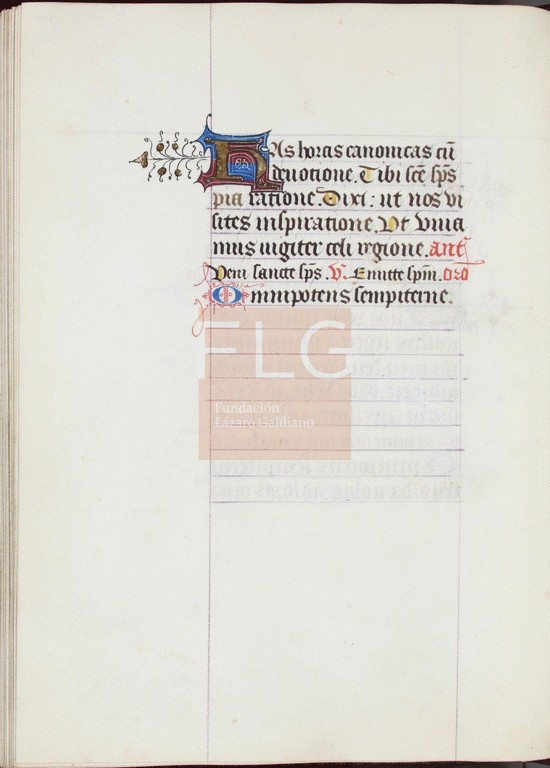 Has horas canonicas cū
deuotione. Tibi scē sp̄s
pia ratione. Dixi: ut nos vi
sites inspiratione. Vt viua
mus iugiter celi regione. ant̄
Veni sancte sp̄s. V. Emitte sp̄m. oro
Omnipotens sempiterne.
FLG
Fundación
Lázaro Galdiano